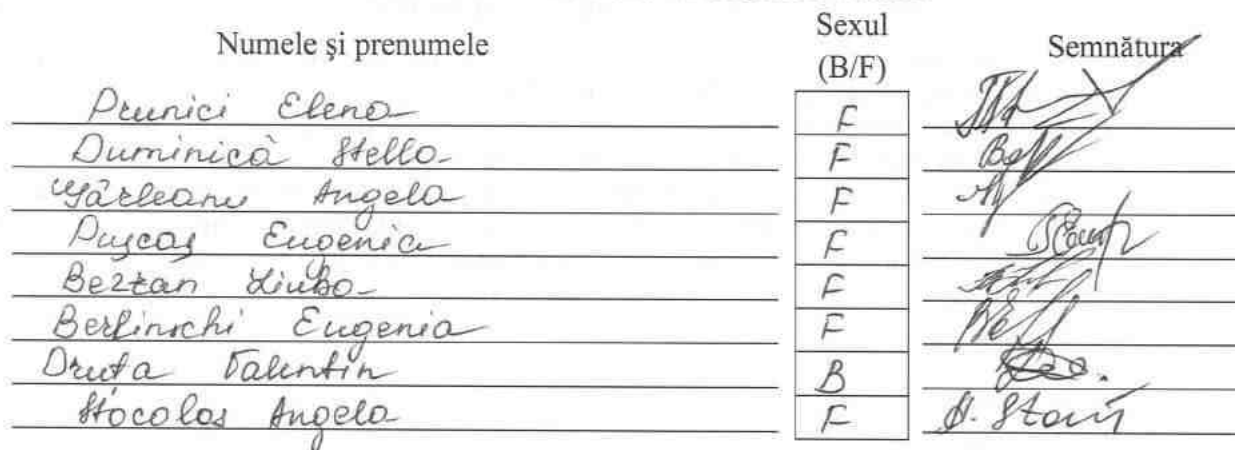 Numele și prenumele Sexul (B/F) Semnătura
Prunici Elena F
Duminică Stella F
Gârleanu Angela F
Pușcaș Eugenia F
Beztan Liuba F
Berlinschi Eugenia F
Druța Valentin B
Stocolos Angela F